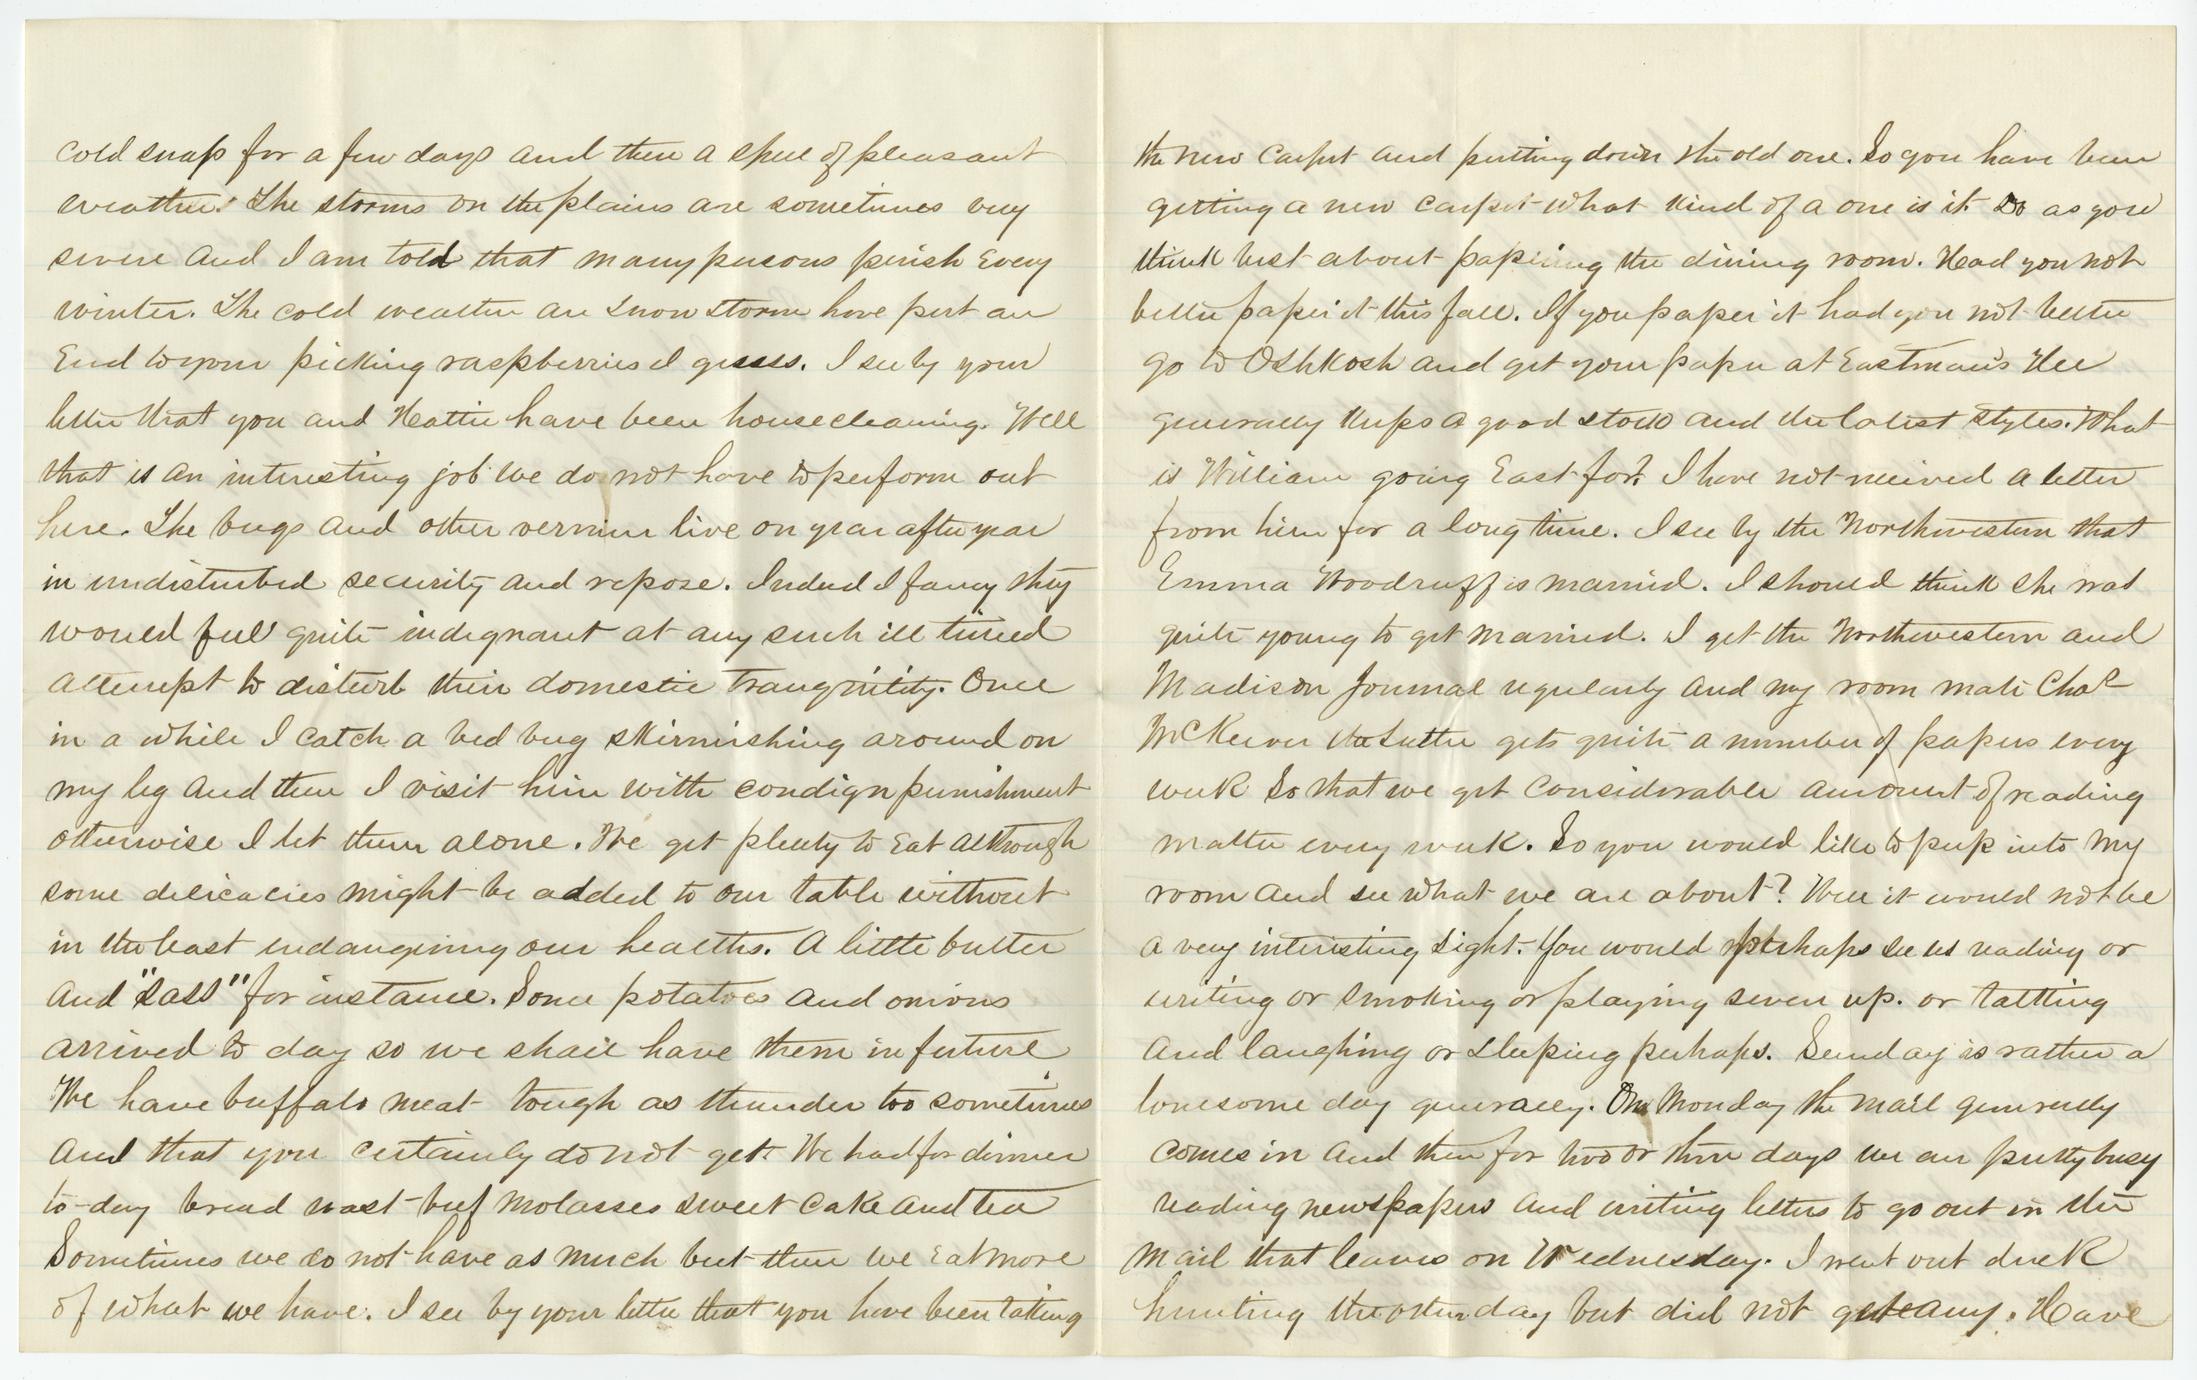 cold snap for a few days and then a spell of pleasant
weather. The storms on the plains are sometimes very
severe and I am told that many persons perish every
winter. The cold weather and snow storm have put an
End to your picking raspberries I guess. I see by your
letter that you and Hattie have been housecleaning. Well
that is an interesting job we do not have to perform out
here. The bugs and other vermin live on year after year
in undisturbed security and repose. Indeed I fancy they
would feel quite indignant at any such ill timed
attempt to disturb their domestic tranquility. Once
in a while I catch a bed bug skirmishing around on
my leg and then I visit him with condign punishment
otherwise I let them alone. We get plenty to Eat although
some delicacies might be added to our table without
in the least endangering our healths. A little butter
and "sass" for instance. Some potatoes and onions
arrived to day so we shall have them in future
We have buffalo meat tough as thunder too sometimes
And that you certainly do not get. We had for dinner
to-day bread roast-beef molasses sweet cake and tea
Sometimes we do not have as much but then we Eat more
of what we have. I see by your letter that you have been taking
the new carpet and putting down the old one. So you have been
getting a new carpet what kind of a one is it. Do as you
think best about papering the dining room. Had you not
better paper it this fall. If you paper it had you not better
go to Oshkosh and get your paper at Eastman's He
generally keeps a good stock and the latest styles. What
is William going East for? I have not received a letter
from him for a long time. I see by the Northwestern that
Emma Woodruff is married. I should think she was
quite young to get married. I get the Northwestern and
Madison Journal regularly and my room mate Chas
McKeever the Sutler gets quite a number of papers every
week So that we get considerable amount of reading
matter every week. So you would like to peep into my
room and see what we are about? Well it would not be
a very interesting sight. You would perhaps see us reading or
writing or smoking or playing seven up. or talking
and laughing or sleeping perhaps. Sunday is rather a
lonesome day generally. On Monday the mail generally
comes in and then for two or three days we are pretty busy
reading newspapers and writing letters to go out in the
mail that leaves on Wednesday. I went out duck
hunting the other day but did not get any. Have